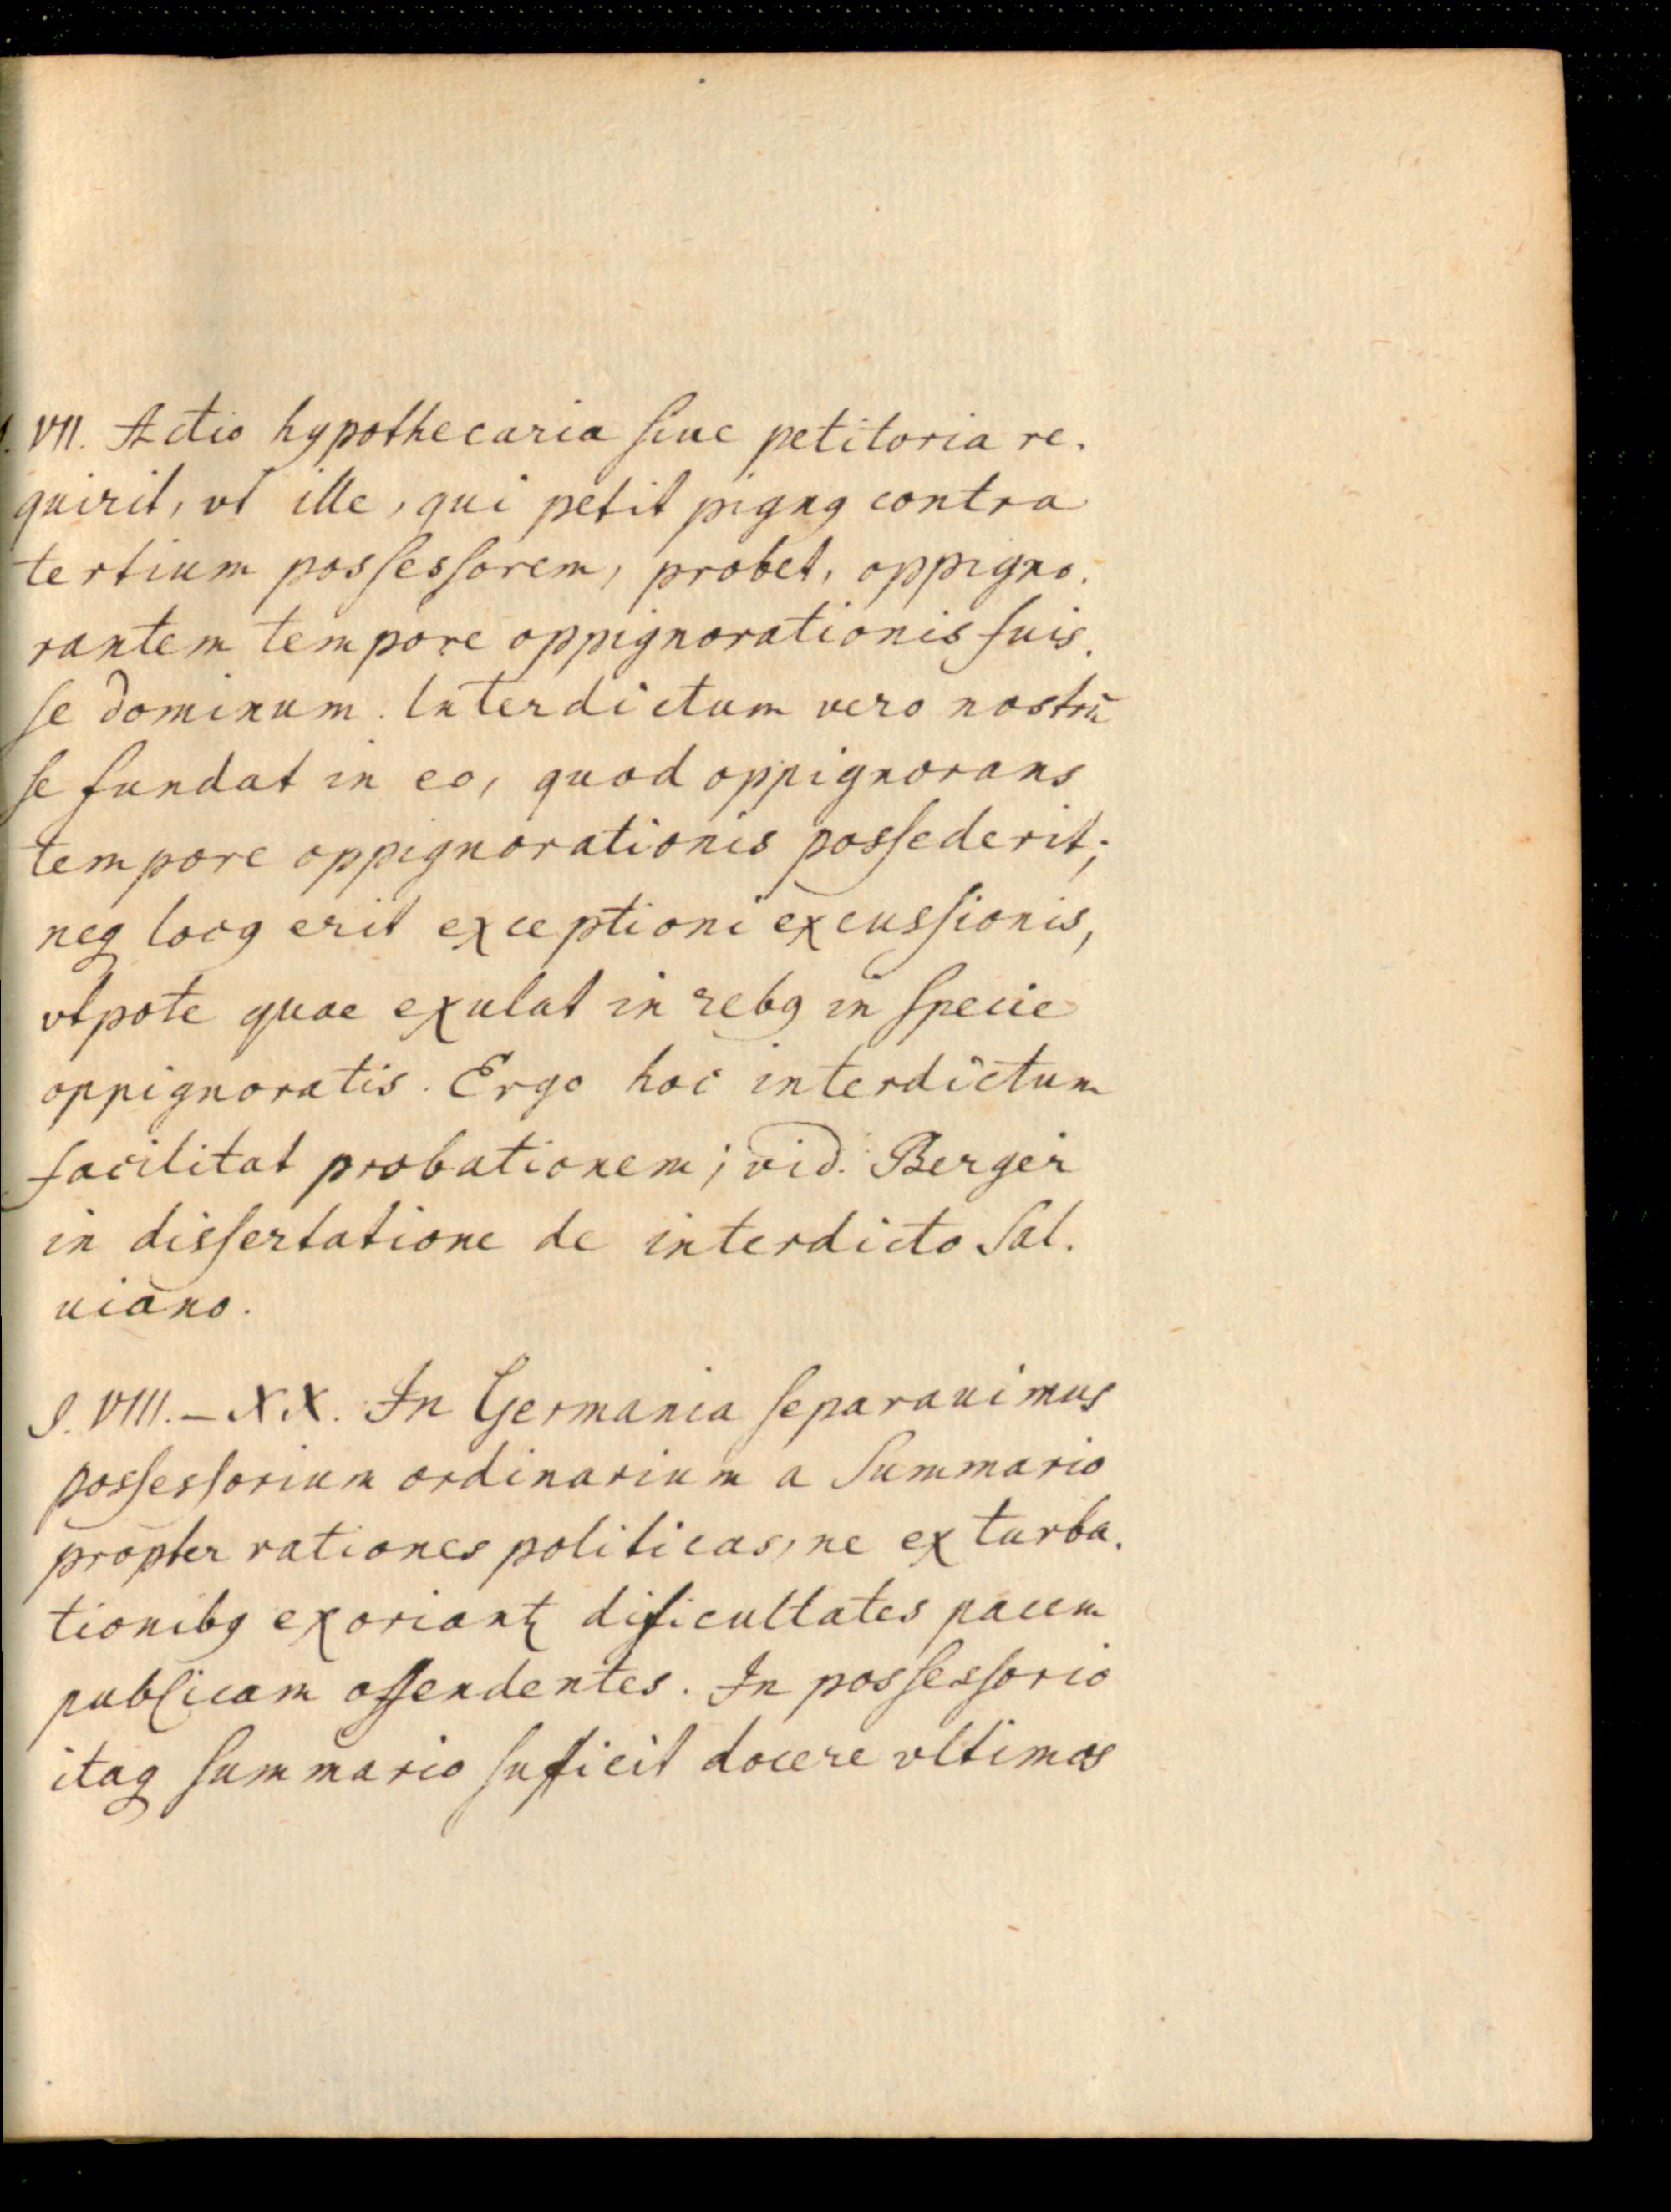 §. VII. Actio hypothecaria ſiue petitoria re-
quirit, vt ille, qui petit pignꝰ contra
tertium posſesſorem, probet, oppigno-
rantem tempore oppignorationis fuis-
ſe dominum. Interdictum vero nostrū
ſe fundat in eo, quod oppignorans
tempore oppignorationis posſederit;
neqꝫ locꝰ erit exceptioni excusſionis,
vtpote quae exulat in rebꝰ in ſpecie
oppignoratis. Ergo hoc interdictum
facilitat probationem; vid. Berger
in disſertatione de interdicto Sal-
uiano.
§. VIII. – XX. In Germania ſeparauimus
posſesſorium ordinarium a Summario
propter rationes politicas, ne ex turba-
tionibꝰ exoriantꝛ dificultates pacem
publicam offendentes. In posſesſorio
itaqꝫ ſummario ſufficit docere vltimos